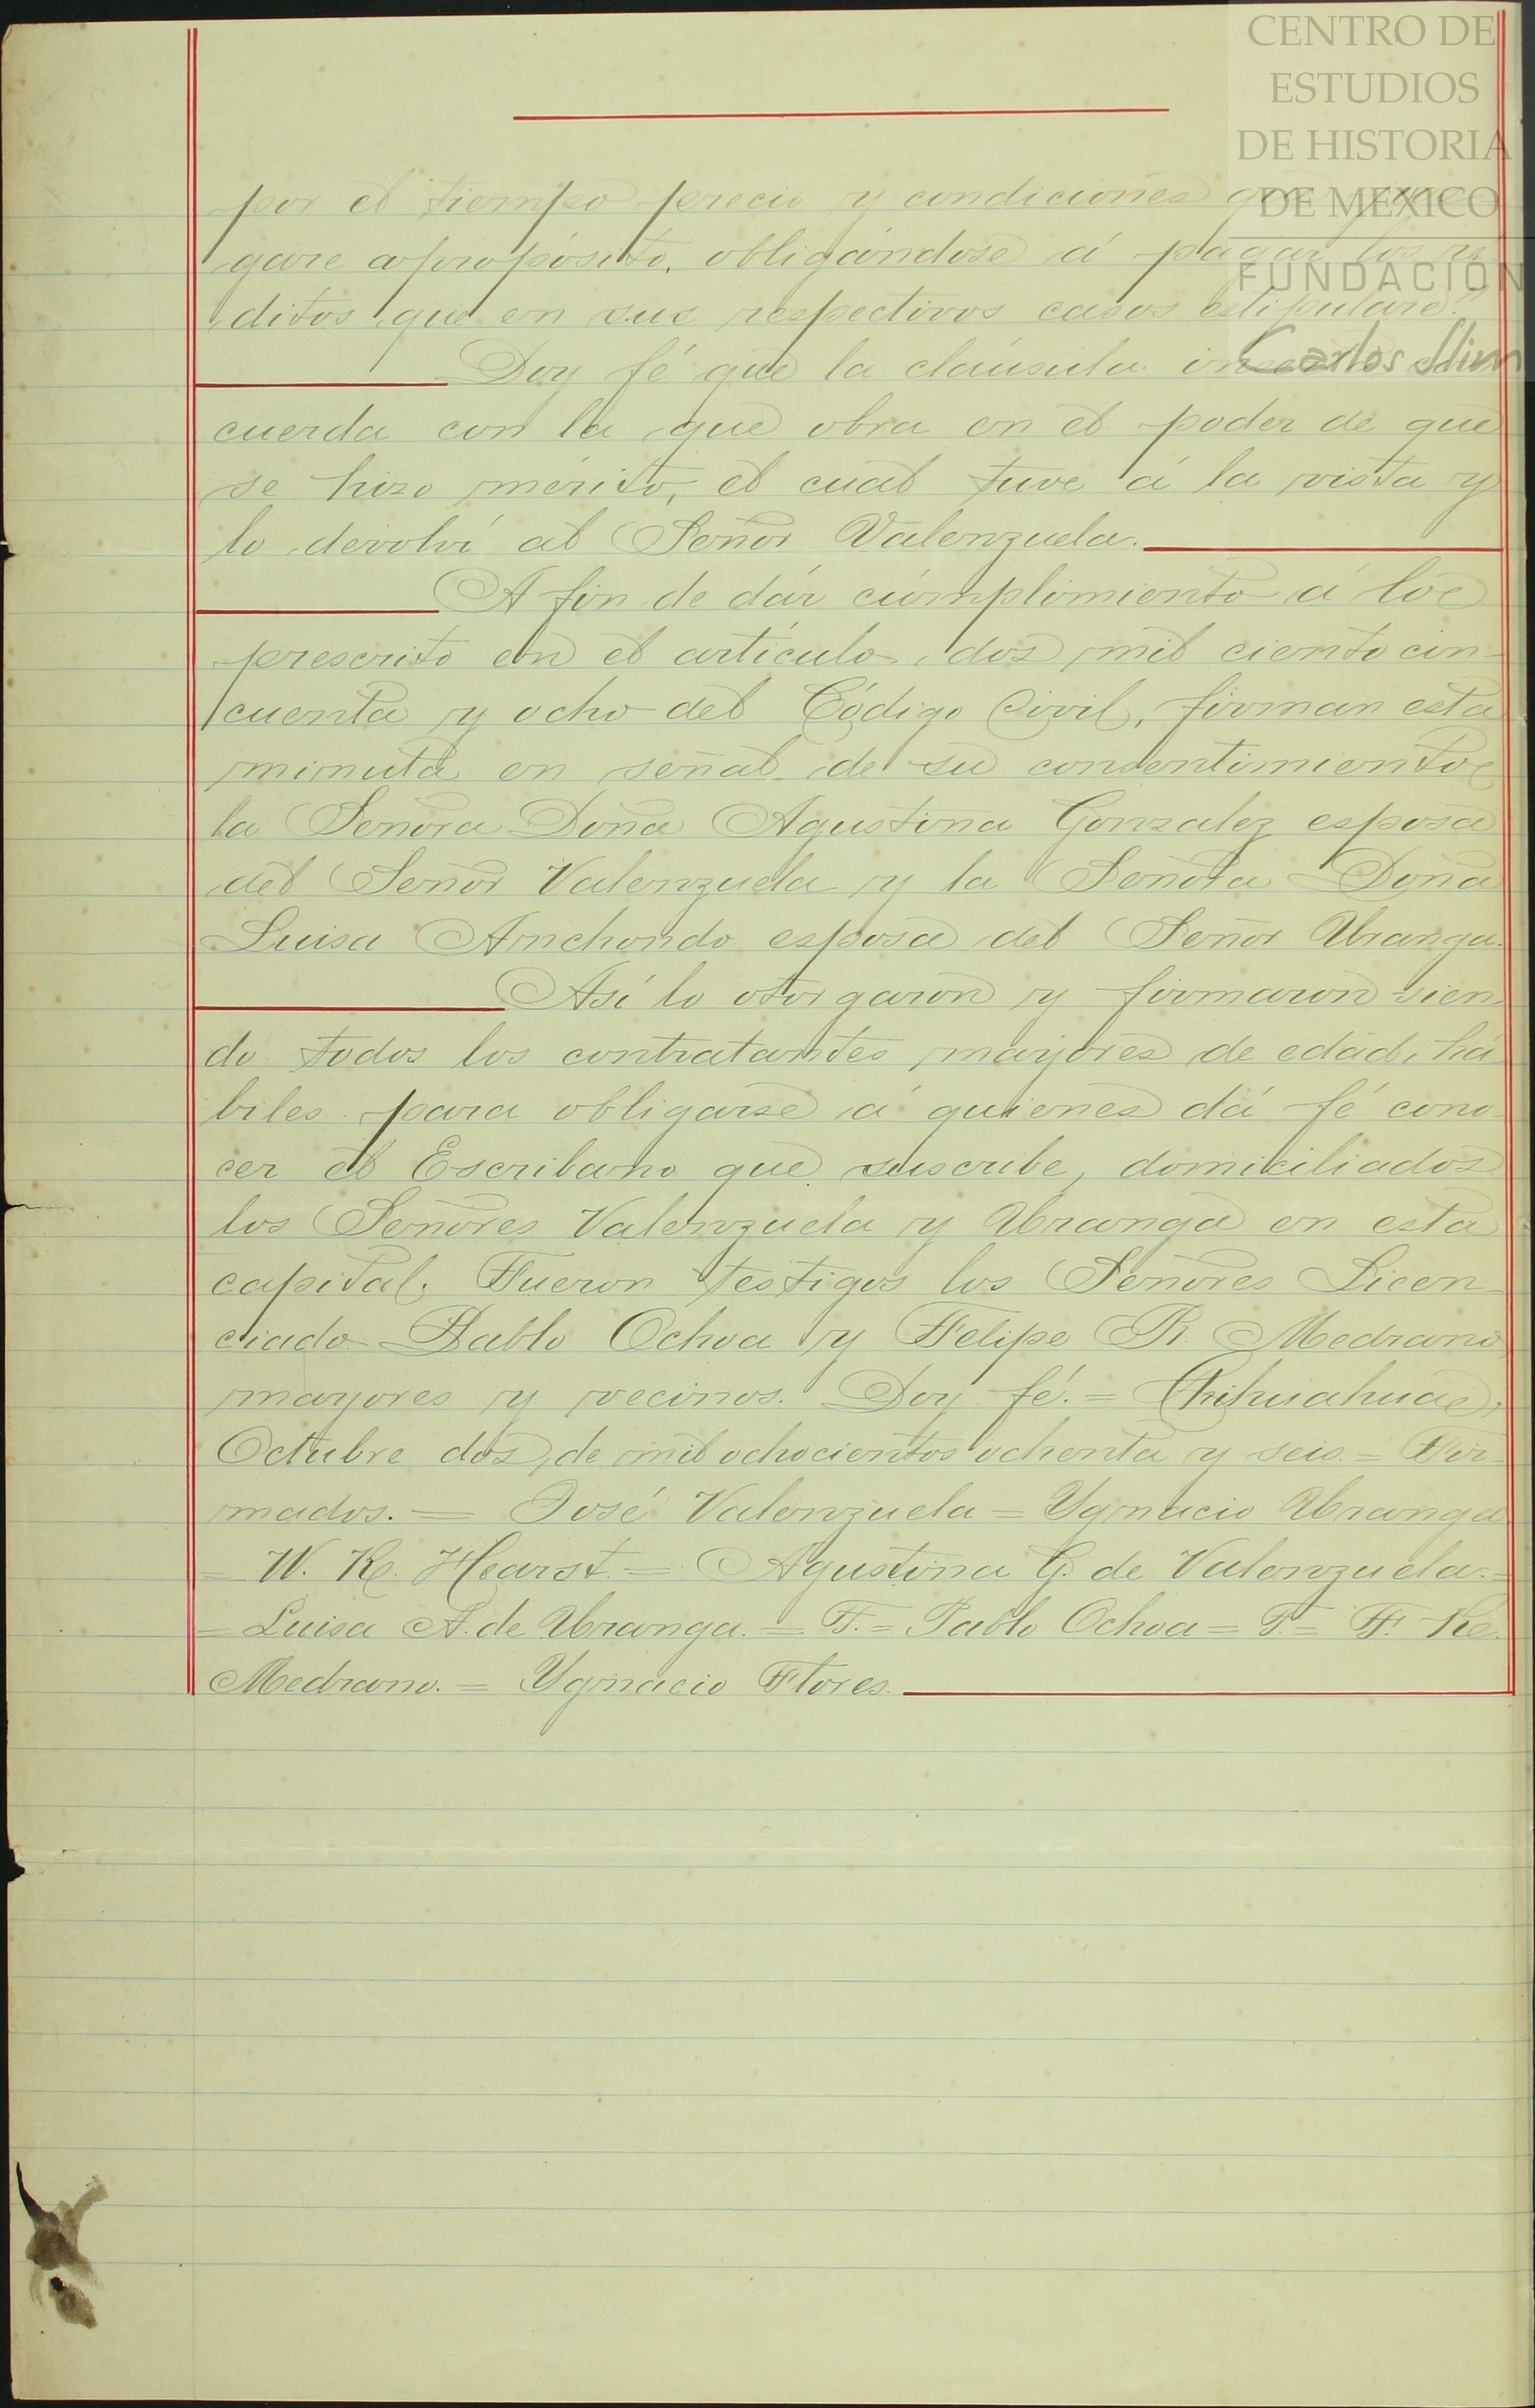 CENTRO DE
ESTUDIOS
DE HISTORIA
DE MEXICO
FUNDACIÓN
Carlos Slim
por el tiempo precio y condiciones que juz
gare apropósito, obligándose á pagar los ré
ditos que en sus respectivos casos estipulare."
Doy fé que la cláusula inserta con
cuerda con la que obra en el poder de que
se hizo mérito, el cual tuve á la vista y
lo devolví al Señor Valenzuela.
A fin de dár cumplimiento á lo
prescrito en el artículo dos mil ciento cin-
cuenta y ocho del Código Civil, firman esta
minuta en señal de su consentimiento
la Señora Doña Agustina Gonzalez esposa
del Señor Valenzuela y la Señora Doña
Luisa Anchondo esposa del Señor Uranga.
Así lo otorgaron y firmaron sien-
do todos los contratantes mayores de edad, há
biles para obligarse á quienes dá fé cono
cer el Escribano que suscribe, domiciliados
los Señores Valenzuela y Uranga en esta
capital. Fueron testigos los Señores Licen-
ciado Pablo Ochoa y Felipe R. Medrano,
mayores y vecinos. Doy fé. = Chihuahua,
Octubre dos, de mil ochocientos ochenta y seis. = Fir-
mados. = José Valenzuela = Ygnacio Uranga
= W. R. Hearst. = Agustina G. de Valenzuela. =
= Luisa A. de Uranga. = T. = Pablo Ochoa = T. = F. R.
Medrano. = Ygnacio Flores.